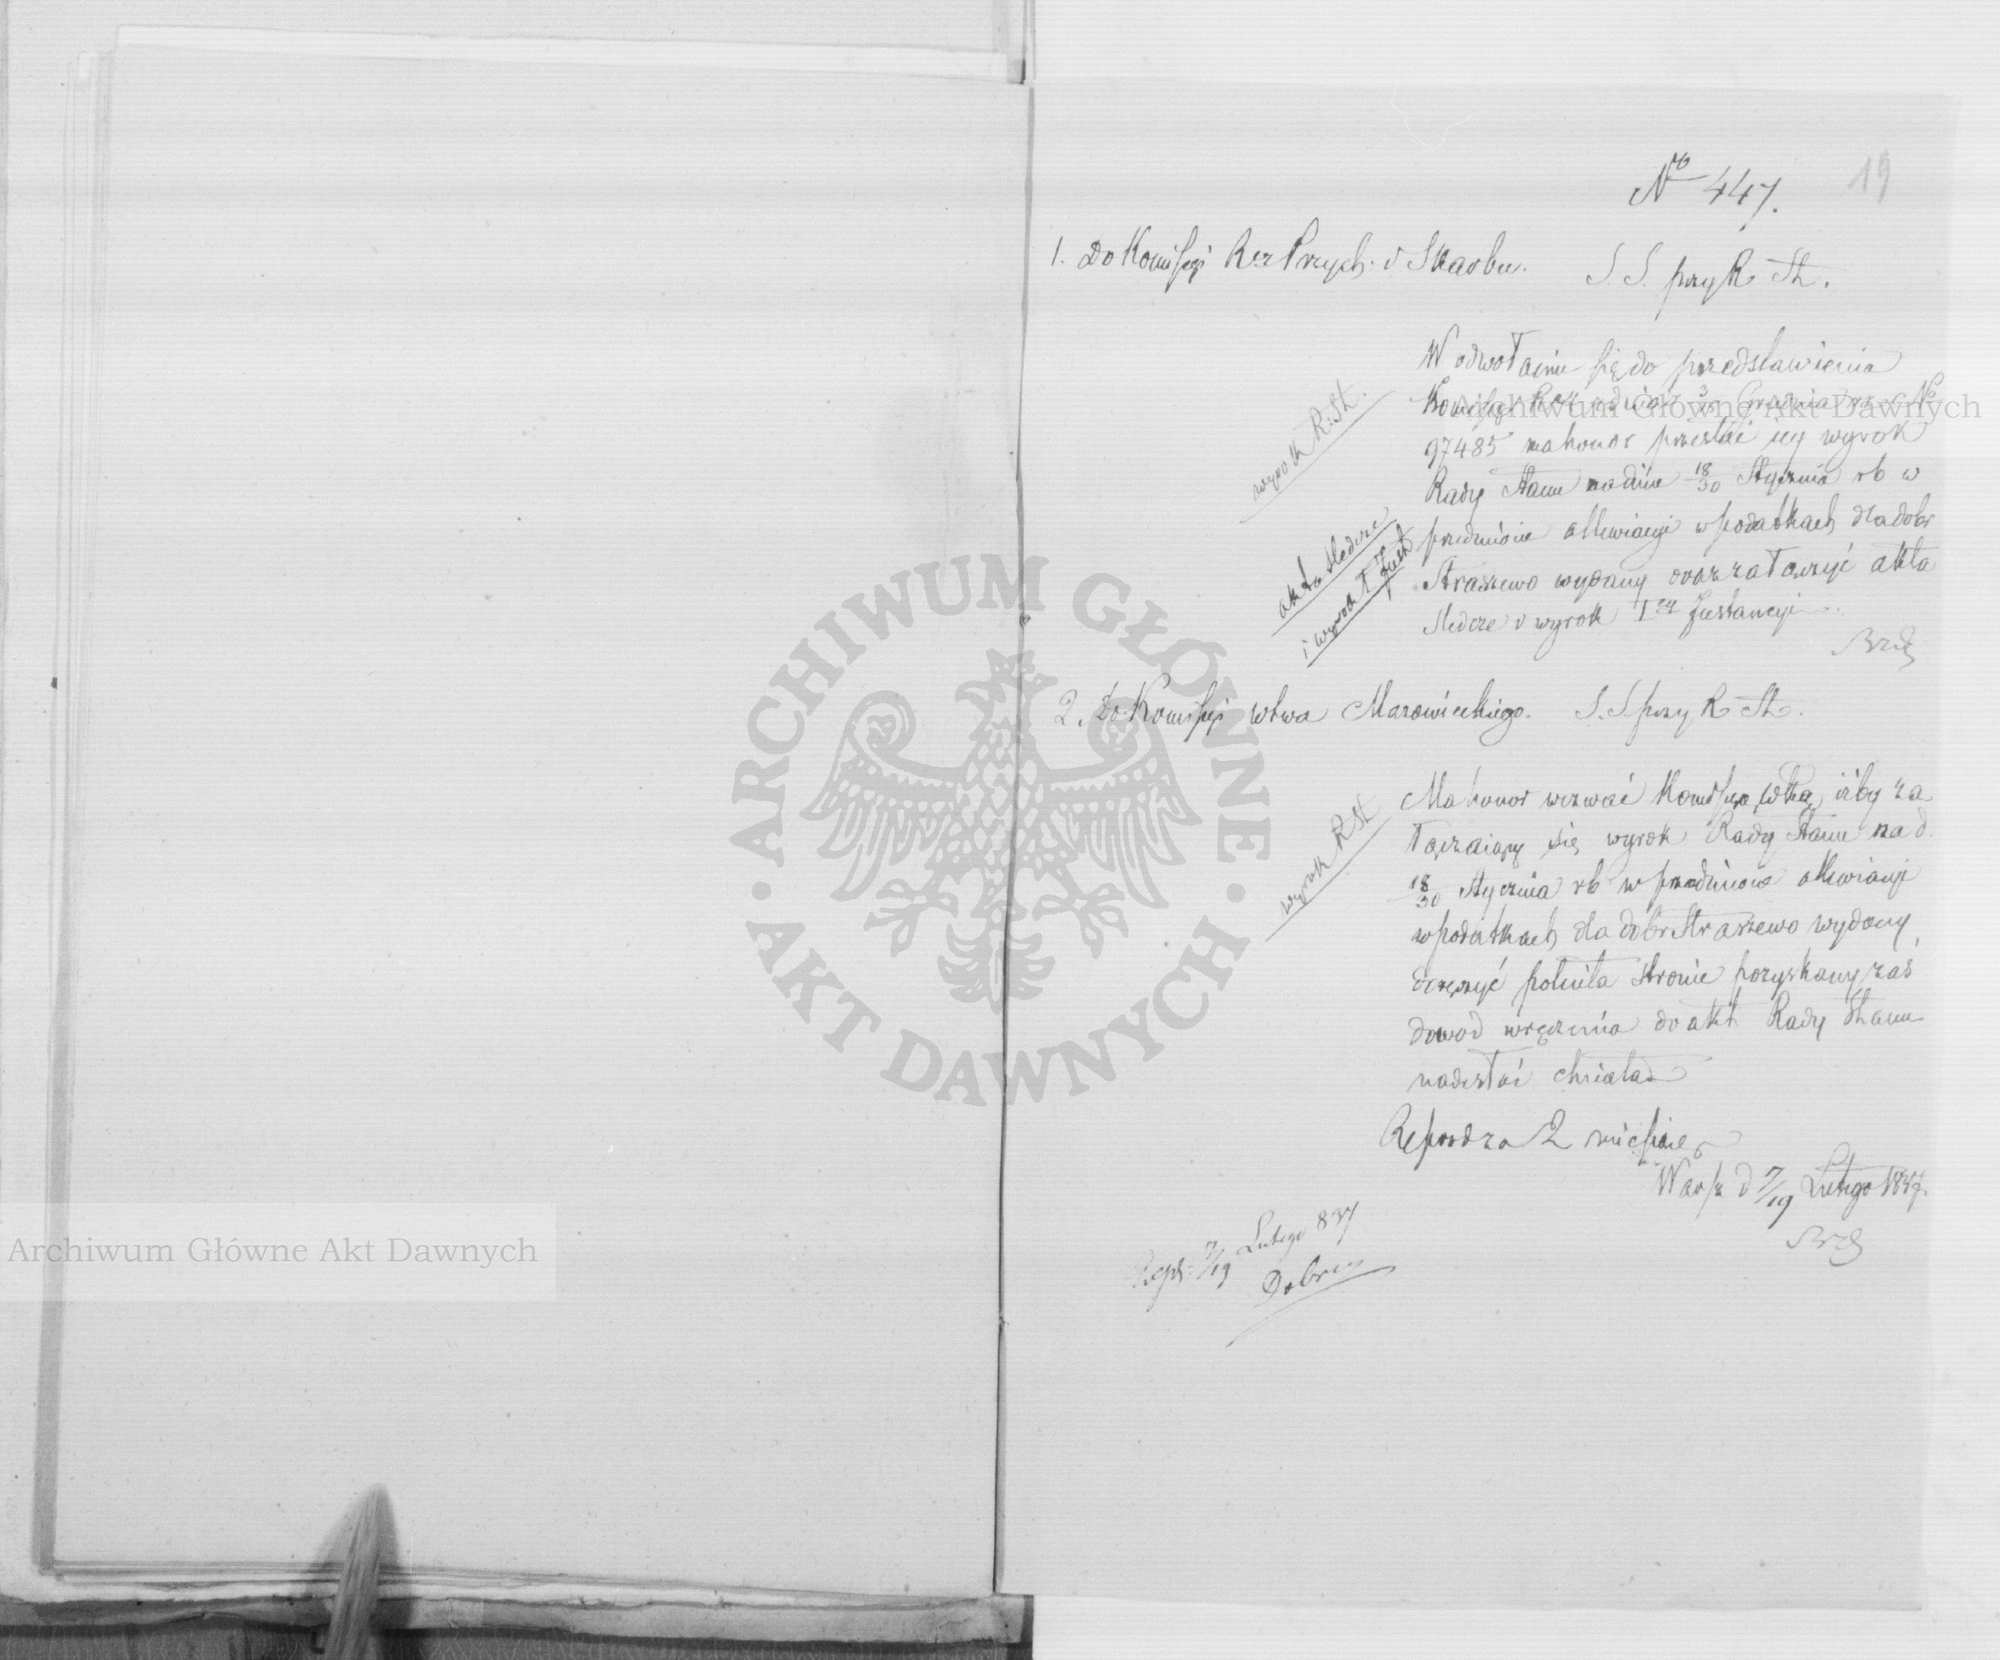 19
No 447.
1. Do Komissyi Rz Przych: i Skarbu.
S. S. przy R St.
W odwołaniu się do przedstawienia
Komissyi Rz z dnia Grudnia No
97485 ma honor przesłać jey wyrok
Rady Stanu na dniu 18/30 Stycznia rb w
przedmiocie allewiacyi w podatkach dla dobr
Straszewo wydany oraz załączyć akta
śledcze i wyrok Iey Instancyi
wyrok R. St.
akta śledcze
i wyrok I Inst
2. Do Komissyi wtwa Mazowieckiego.
S. S. przy R St.
Ma honor wezwać Kommissyą Wtką iżby za
łączaiący się wyrok Rady Stanu na d.
18/30 Stycznia rb w przedmiocie allewiacyi
w podatkach dla dobr Straszewo wydany
doręczyć stronie pozyskany zaś
dowód wręczenia do akt Rady Stanu
nadesłać chciała
wyrok R St
2 miesiące
Warsz d 7/19 Lutego 1837
7/19 Lutego 837
ARCHIWUM GŁÓWNE
· AKT DAWNYCH ·
Archiwum Główne Akt Dawnych
Archiwum Główne Akt Dawnych